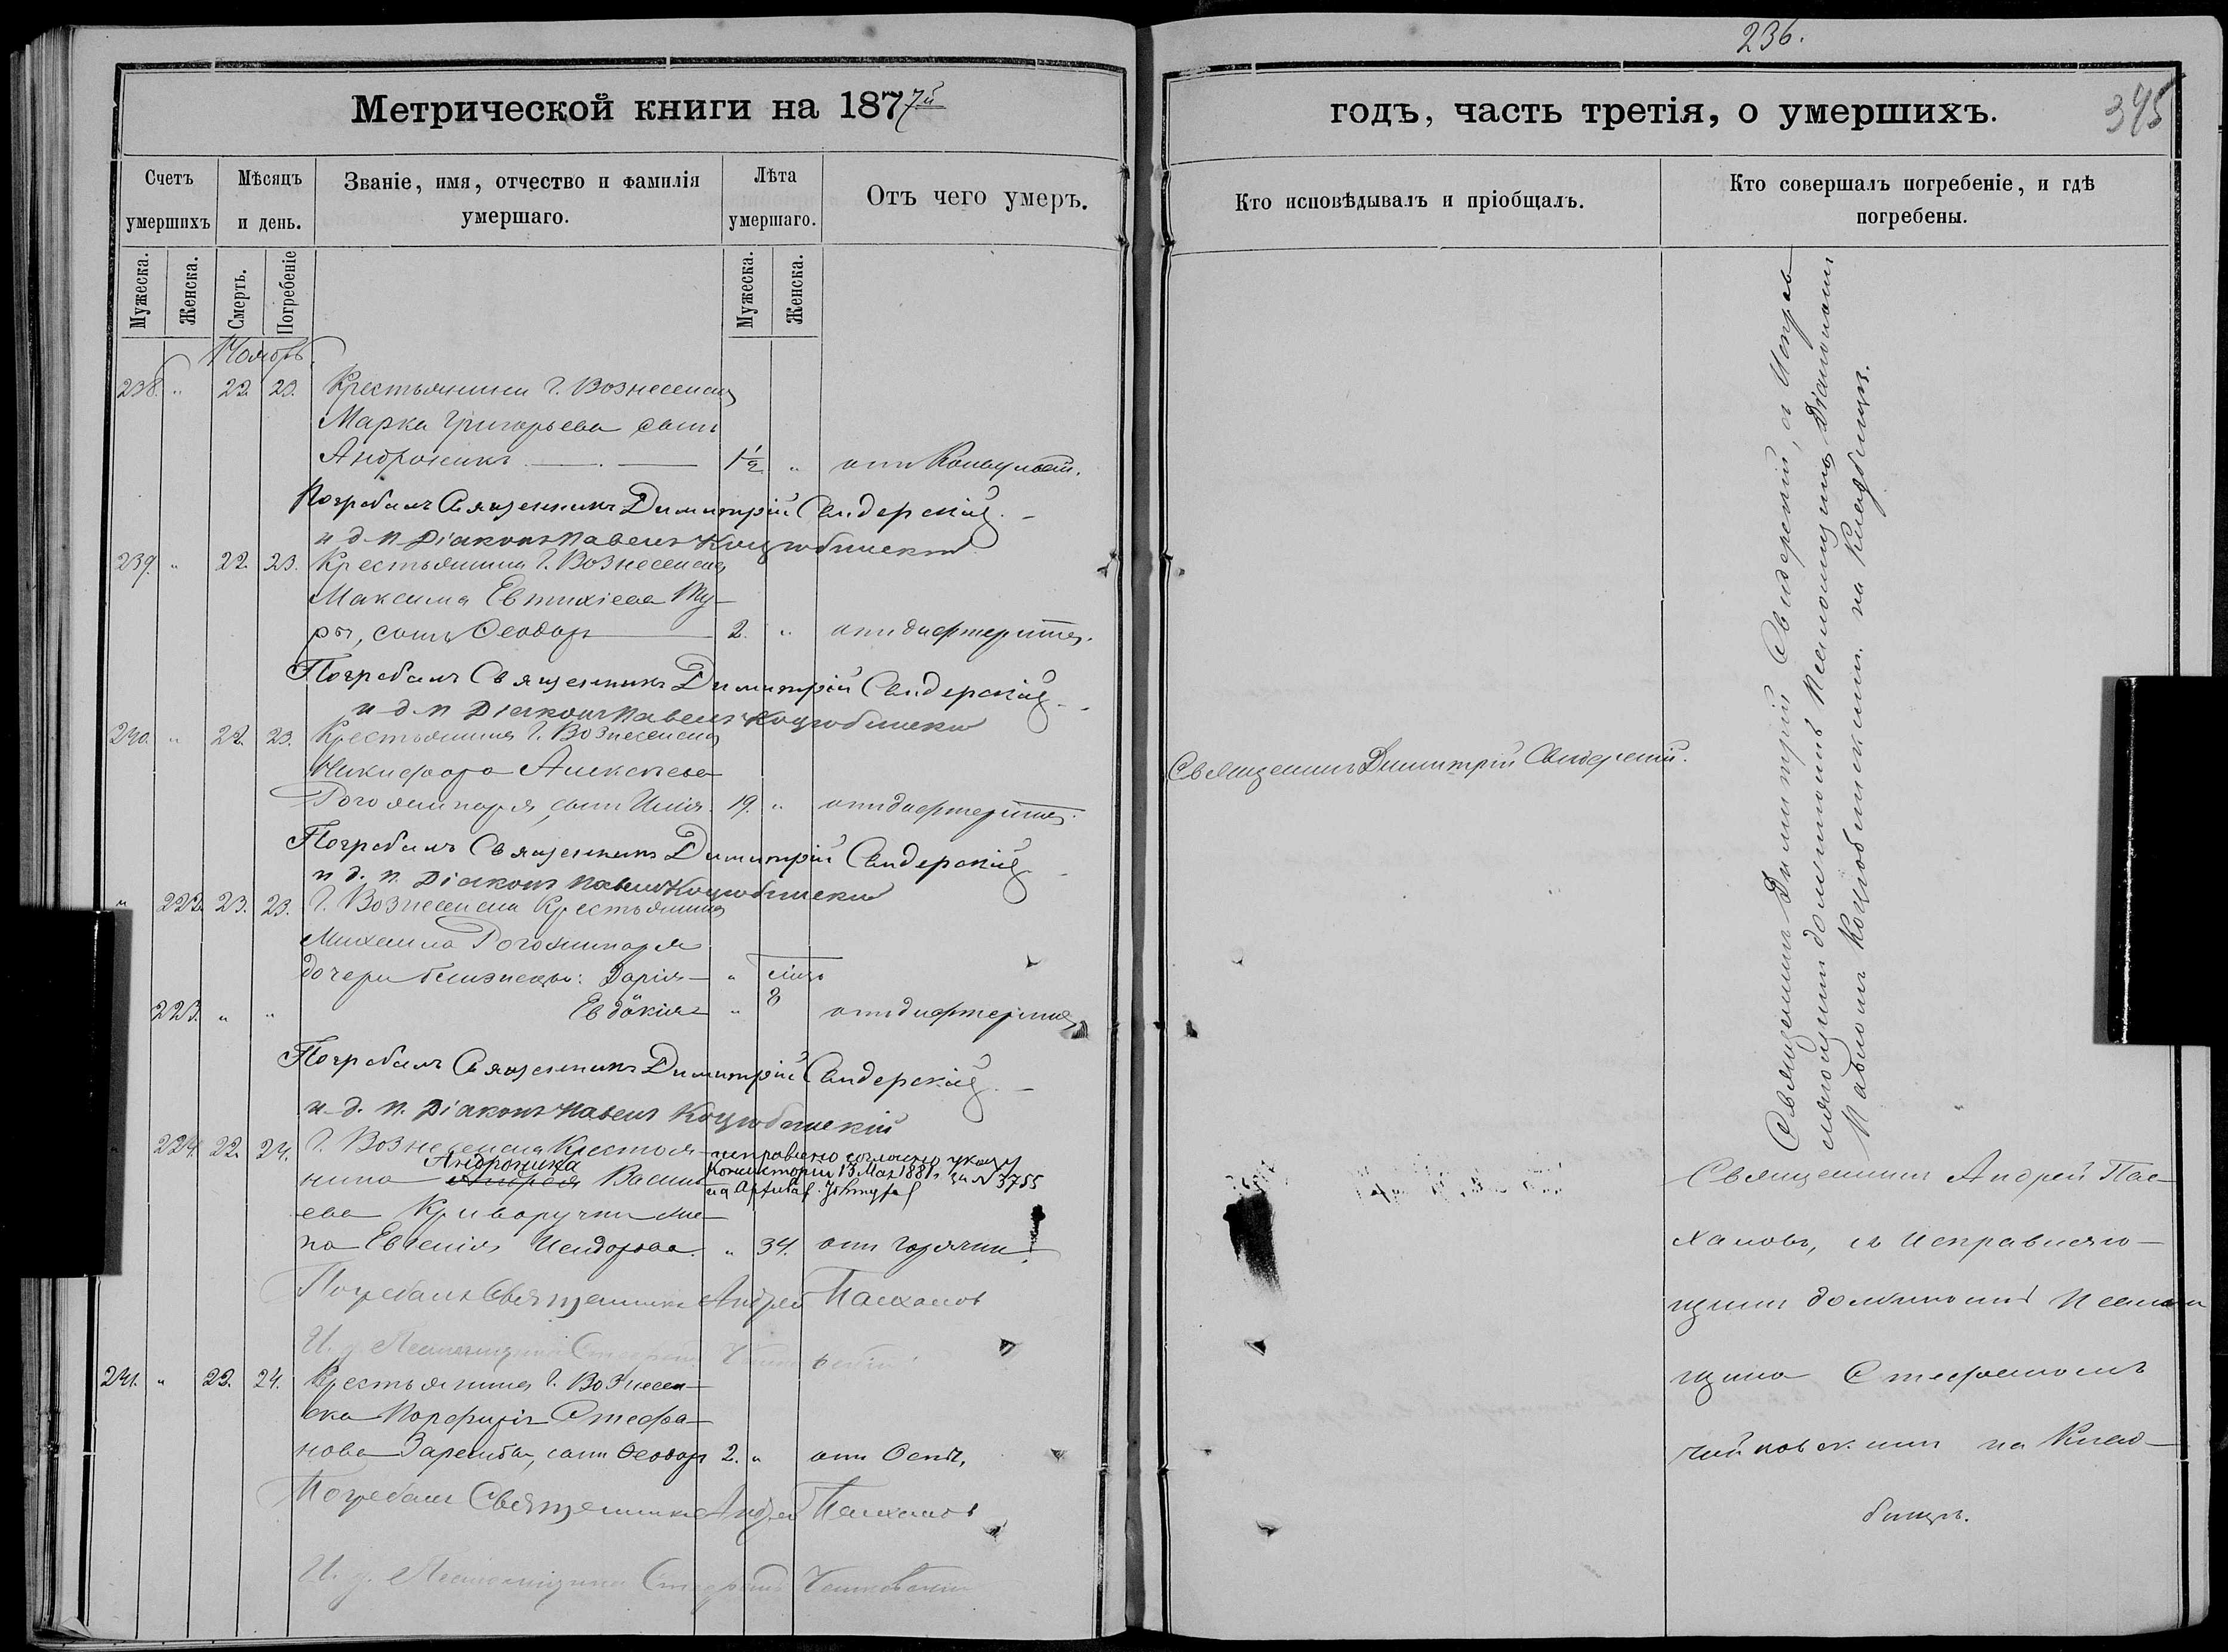 236.
345
Метрической книги на 1877й
годъ, часть третія, о умершихъ.
Счетъ умершихъ
Мѣсяцъ и день.
Званіе, имя, отчество и фамилія умершаго.
Лѣта умершаго.
Отъ чего умеръ.
Кто исповѣдывалъ и пріобщалъ.
Кто совершалъ погребеніе, и гдѣ погребены.
Мужеска.
Женска.
Смерть.
Погребеніе
Мужеска.
Женска.
Ноябрь
238. " 22. 23. Крестьянина Г. Вознесенска
Марка Григорьева сынъ
Андроникъ 1½ "
Погребалъ Священникъ Димитрій Свидерскій
и д. п. Діаконъ Павелъ Коцюбинскій
239. " 22. 23. Крестьянина Г. Вознесенска
Максима Евтихіева Ту-
ры, сынъ Ѳеодоръ 2. " отъ дифтерита.
Погребалъ Священникъ Димитрій Свидерскій
и д. п. Діаконъ Павелъ Коцюбинскій
240. " 22. 23. Крестьянина Г. Вознесенска
Никифора Алексѣева
сынъ Илія 19. " отъ дифтерита.
Священникъ Димитрій Свидерскій.
Погребалъ Священникъ Димитрій Свидерскій
и д. п. Діаконъ Павелъ Коцюбинскій
" 222. 23. 23. Г. Вознесенска Крестьянина
Михаила
дочери близнецы: Дарія "
223. " " Евдокія " 8 отъ дифтерита
Погребалъ Священникъ Димитрій Свидерскій
и. д. п. Діаконъ Павелъ Коцюбинскій
224. 22. 24. Г. Вознесенска Крестья-
исправлено согласно указу
Андроника
Консисторіи 13 Мая 1881 г. за № 3755
нина Андрея Василь-
ева Криворучки же-
на Евгенія Исидорова. " 34. отъ горячки
Погребалъ Священникъ Андрей Пасхаловъ
И. д. Псаломщика Стефанъ
241. " 22. 24. Крестьянина Г. Вознесен-
ска Порфирія Стефа-
нова Зарембы, сынъ Ѳеодоръ 2. " отъ Оспы.
Погребалъ Священникъ Андрей Пасхаловъ
И. д. Псаломщика Стефанъ Чайковскій
Священникъ Димитрій Свидерскій, съ Исправ-
ляющимъ должность Псаломщика, Діакономъ
Павломъ Коцюбинскимъ на Кладбищѣ.
Священникъ Андрей Пас-
халовъ, съ Исправляю-
щимъ должность Псалом
щика Стефаномъ
Чайковскимъ на Клад-
бищѣ.